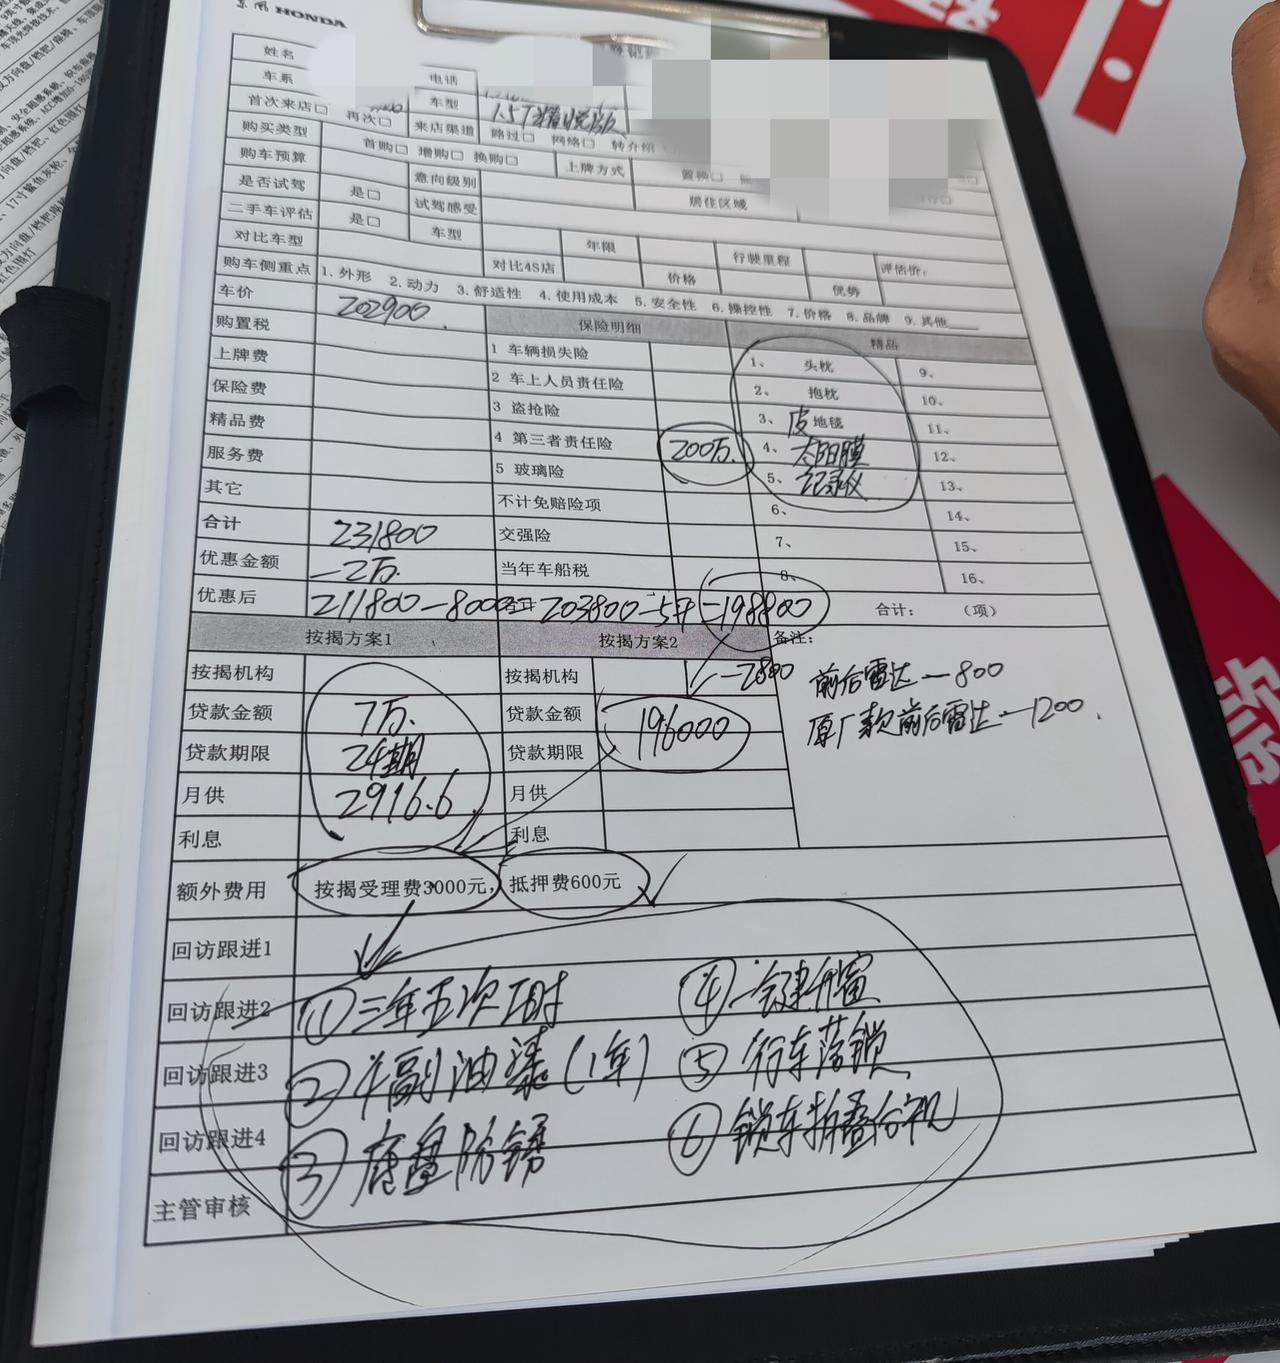 HONDA
姓名
车系 电话
首次来店□ 再次□ 车型 1.5T精悦版
购买类型 首购□ 增购□ 换购□ 来店渠道 路过□ 网络□ 转介绍
购车预算 意向级别 上牌方式 置换□
是否试驾 是□ 试驾感受 居住区域
二手车评估 是□ 车型 年限 行驶里程 评估价:
对比车型 对比4S店 价格 优势
购车侧重点 1.外形 2.动力 3.舒适性 4.使用成本 5.安全性 6.操控性 7.价格 8.品牌 9.其他
车价 202900 保险明细 精品
购置税 1 车辆损失险 1、 头枕 9、
上牌费 2 车上人员责任险 2、 抱枕 10、
保险费 3 盗抢险 3、 皮地毯 11、
精品费 4 第三者责任险 200万. 4、 太阳膜 12、
服务费 5 玻璃险 5、 记录仪 13、
其它 不计免赔险项 6、 14、
合计 231800 交强险 7、 15、
优惠金额 -2万. 当年车船税 8、 16、
优惠后 211800-8000 = 203800-5千 =198800 合计: (项)
按揭方案1 按揭方案2 备注:
按揭机构 按揭机构 -2800 前后雷达—800
贷款金额 7万. 贷款金额 196000 原厂款前后雷达—1200.
贷款期限 24期 贷款期限
月供 2916.6 月供
利息 利息
额外费用 按揭受理费3000元, 抵押费600元
回访跟进1
回访跟进2 ①三年五次工时 ④一键升窗
回访跟进3 ②半副油漆(1年) ⑤行车落锁
回访跟进4 ③底盘防锈 ⑥锁车折叠后视
主管审核